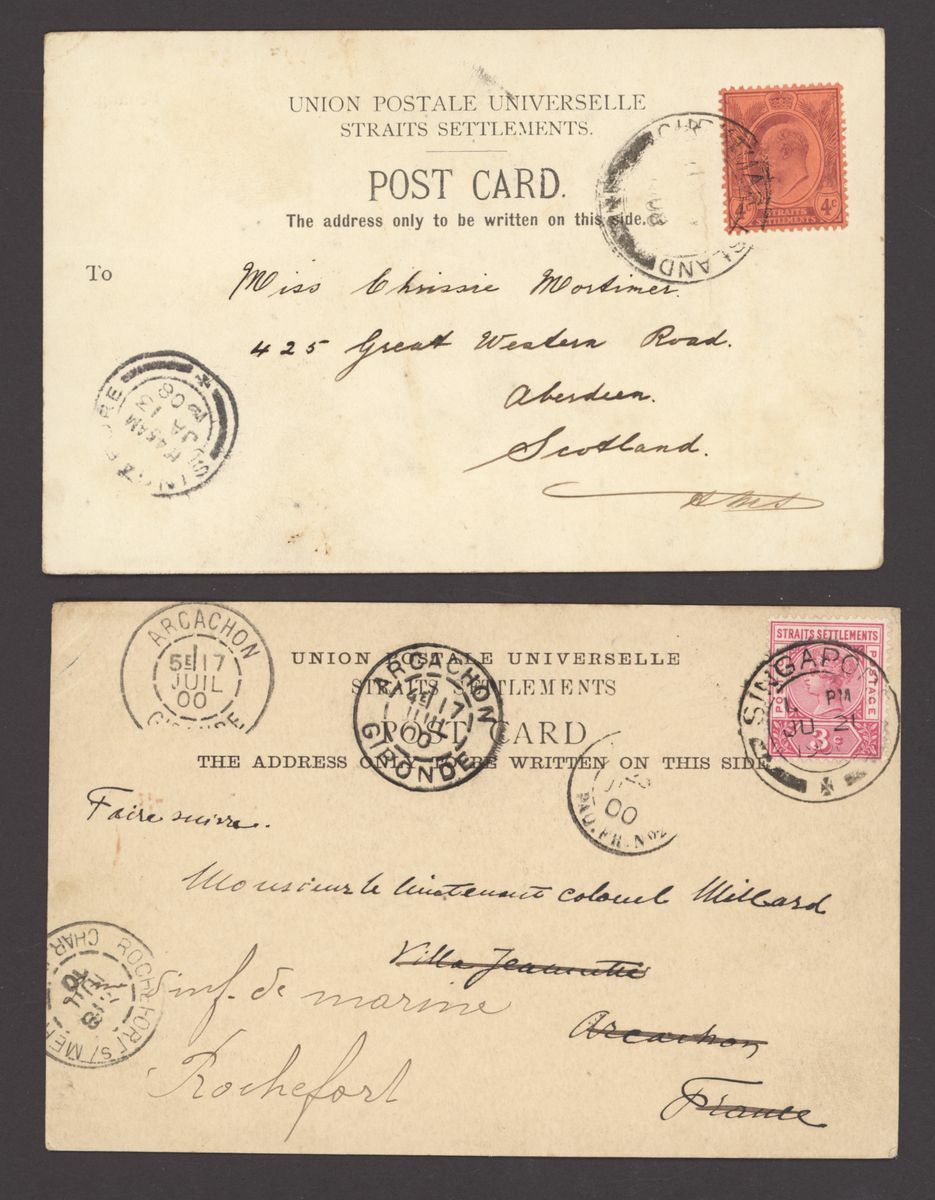 UNION POSTALE UNIVERSELLE
STRAITS SETTLEMENTS.
POST CARD.
The address only to be written on this side.
4c 4c
STRAITS
SETTLEMENTS
ISLAND
08
To
Miss Chrissie Mortimer.
425 Great Western Road.
Aberdeen.
Scotland.
SINGAPORE
45 AM
JA 13
08
ARCACHON
5E 17
JUIL
00
GIRONDE
UNION POSTALE UNIVERSELLE
STRAITS SETTLEMENTS
POST CARD
THE ADDRESS ONLY TO BE WRITTEN ON THIS SIDE
ARCACHON
4E 17
JUIL
00
GIRONDE
STRAITS SETTLEMENTS
POSTAGE
3c
SINGAPORE
PM
JU 21
00
PAQ. FR. No2
Faire suivre.
Monsieur le lieutenant colonel Millard
Villa Jeannette
Arcachon
France
inf. de marine
Rochefort
ROCHEFORT S/ MER
CHAR
18
JUIL